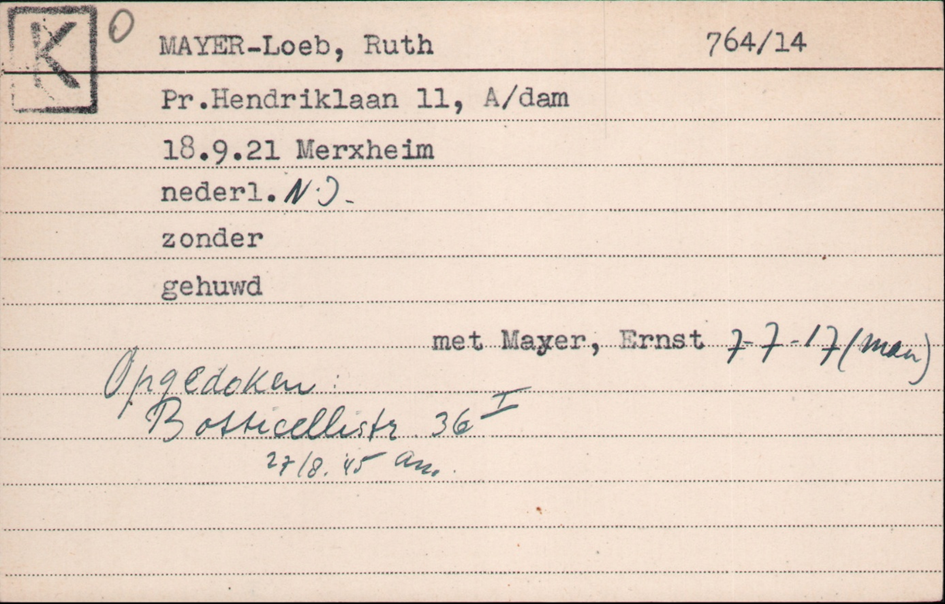 K O MAYER-Loeb, Ruth 764/14
Pr.Hendriklaan 11, A/dam
18.9.21 Merxheim
nederl. N.J.
zonder
gehuwd
met Mayer, Ernst 7-7-17 (man)
Opgedoken:
Botticellistr 36 I
27/8.45 am.